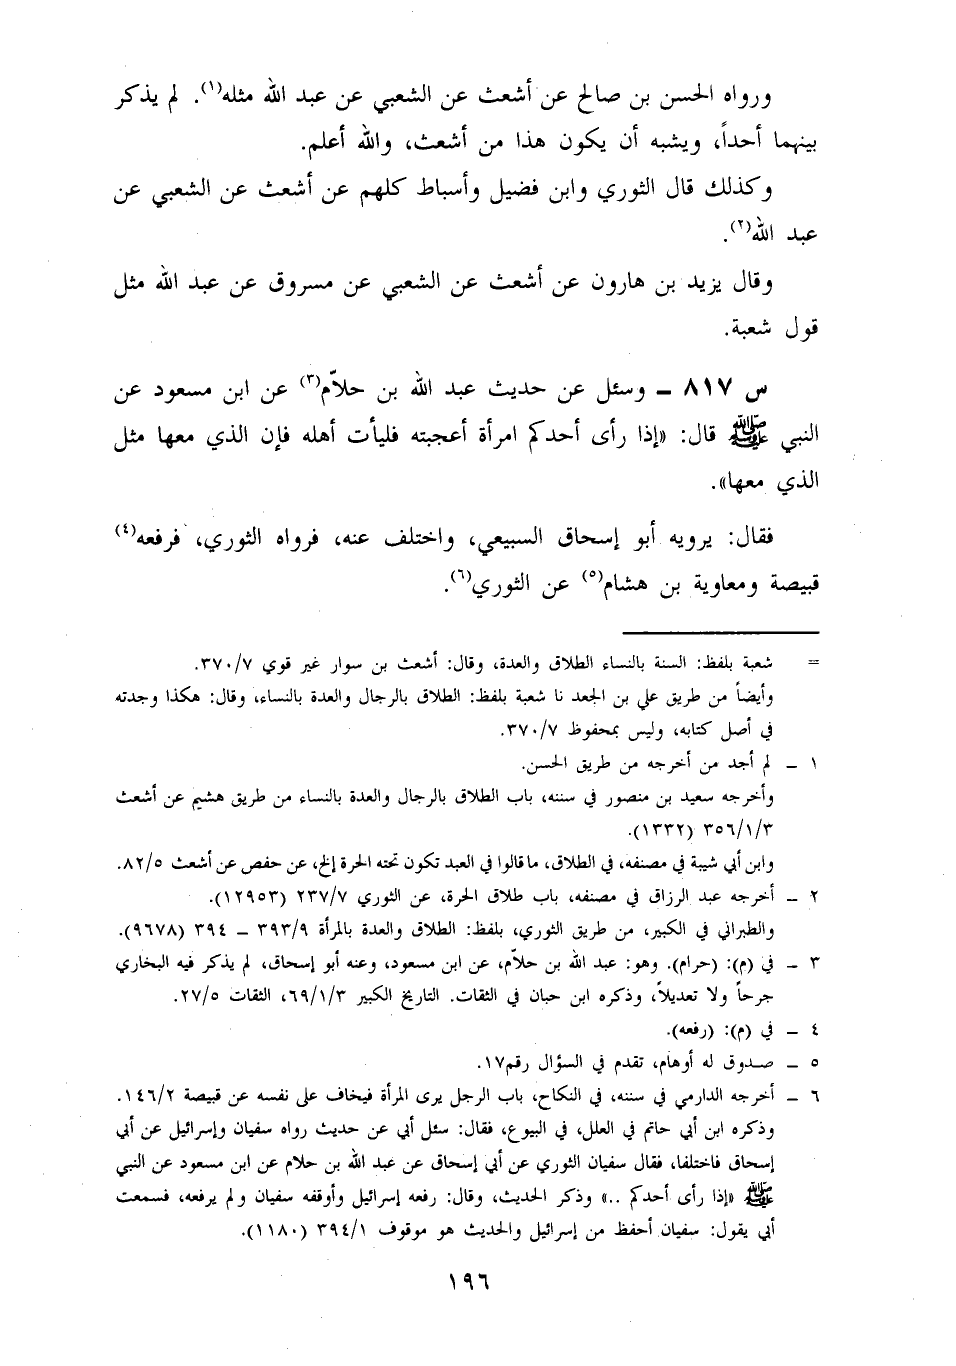 ورواه الحسن بن صالح عن أشعث عن الشعبي عن عبد الله مثله(١). لم يذكر
بينهما أحداً، ويشبه أن يكون هذا من أشعث، والله أعلم.
وكذلك قال الثوري وابن فضيل وأسباط كلهم عن أشعث عن الشعبي عن
عبد الله(٢).
وقال يزيد بن هارون عن أشعث عن الشعبي عن مسروق عن عبد الله مثل
قول شعبة.
س ٨١٧ ـ وسئل عن حديث عبد الله بن حلاّم(٣) عن ابن مسعود عن
النبي ﷺ قال: «إذا رأى أحدكم امرأة أعجبته فليأت أهله فإن الذي معها مثل
الذي معها».
فقال: يرويه أبو إسحاق السبيعي، واختلف عنه، فرواه الثوري، فرفعه(٤)
قبيصة ومعاوية بن هشام(٥) عن الثوري(٦).
= شعبة بلفظ: السنة بالنساء الطلاق والعدة، وقال: أشعث بن سوار غير قوي ٣٧٠/٧.
وأيضاً من طريق علي بن الجعد نا شعبة بلفظ: الطلاق بالرجال والعدة بالنساء، وقال: هكذا وجدته
في أصل كتابه، وليس بمحفوظ ٣٧٠/٧.
١ ـ لم أجد من أخرجه من طريق الحسن.
وأخرجه سعيد بن منصور في سننه، باب الطلاق بالرجال والعدة بالنساء من طريق هشيم عن أشعث
٣٥٦/١/٣ (١٣٣٢).
وابن أبي شيبة في مصنفه، في الطلاق، ما قالوا في العبد تكون تحته الحرة إلخ، عن حفص عن أشعث ٨٢/٥.
٢ ـ أخرجه عبد الرزاق في مصنفه، باب طلاق الحرة، عن الثوري ٢٣٧/٧ (١٢٩٥٣).
والطبراني في الكبير، من طريق الثوري، بلفظ: الطلاق والعدة بالمرأة ٣٩٣/٩ ـ ٣٩٤ (٩٦٧٨).
٣ ـ في (م): (حرام). وهو: عبد الله بن حلاّم، عن ابن مسعود، وعنه أبو إسحاق، لم يذكر فيه البخاري
جرحاً ولا تعديلاً، وذكره ابن حبان في الثقات. التاريخ الكبير ٦٩/١/٣، الثقات ٢٧/٥.
٤ ـ في (م): (رفعه).
٥ ـ صدوق له أوهام، تقدم في السؤال رقم١٧.
٦ ـ أخرجه الدارمي في سننه، في النكاح، باب الرجل يرى المرأة فيخاف على نفسه عن قبيصة ١٤٦/٢.
وذكره ابن أبي حاتم في العلل، في البيوع، فقال: سئل أبي عن حديث رواه سفيان وإسرائيل عن أبي
إسحاق فاختلفا، فقال سفيان الثوري عن أبي إسحاق عن عبد الله بن حلام عن ابن مسعود عن النبي
ﷺ «إذا رأى أحدكم ..» وذكر الحديث، وقال: رفعه إسرائيل وأوقفه سفيان ولم يرفعه، فسمعت
أبي يقول: سفيان أحفظ من إسرائيل والحديث هو موقوف ٣٩٤/١ (١١٨٠).
١٩٦